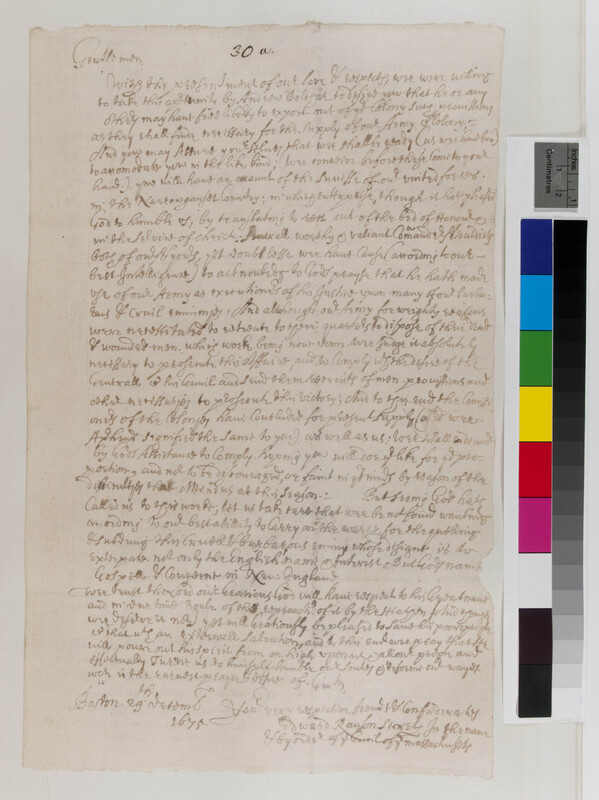 30 a.
Gentlemen
With the presentment of our love & respects wee were willing
to take this oportunity by Andrew Belcher to desire you that he or any
other may have free liberty to export out of yor Colony such provissions
as they shall finde necessary for the supply of our Army
And you may Assure yourselves, that wee shall be ready
to acomodate you in the like kind; wee conceive before these come to your
hands you will have an account of the successe of our united forces
in the Narroganset Country; in which enterprise, though it hath pleased
God to humble us, by translating to rest out of the bed of Honour &
in the service of christ severall worthy & valiant Comanders & Souldiers
both of ours & yours, yet doubtlesse wee have cause (according to our
best Intelligence) to acknowledg to Gods prayse that he hath made
use of our Army as executioners of his Justice upon many of our barbar
ous & Cruell enimyes; And although our Army for weighty reasons
were necessitated to retreate to their quarters to dispose of their dead
& wounded men. which work being now donn. wee Judge it absolutely
necessary to prosecute this Affaire, and to comply with the desire of the
Generall & his Councill and send them recruits of men. provissions and
other necessaryes to prosecute this victory; And to that end the Comissi
oners of the Colonyes have Concluded for present supply
signified the same to you) as well as us; wee shall indeavor
by Gods Assistance to Comply. hoping you will doe the like for yor pro
portion, and not to be discouraged, or faint in yor minds by reason of the
difficultyes that Attends us at this season: But seeing God hath
Called us to this worke, Let us take care that wee be not found wanting
according to our best abillity to carry on the warr, for the quelling
& subduing this Cruell & barbarous enimy whose designe is to
extirpate not only the English name & interest. But Gods name
Gospell & Concerne in New England
Wee trust the Lord our Gracious God will have respect to his Great name
and in due time the reproach of it by the Heathen which though
wee deserve it not, yet will Graciously be pleased to save his poore people
with an externall salvation, and to this end wee pray that he
will poure out his spirit from on high, upon us
effectually Turne us to himself, humble our soules & reforme our wayes
wch is the earnest prayer & desire of. Gentm.
Boston. 29th decemb. Yor very respective friends & Confederates
1675 Edward Rawson Secrety In the name
& by order of ye Councill of ye massachusetts
Inches
Centimetres